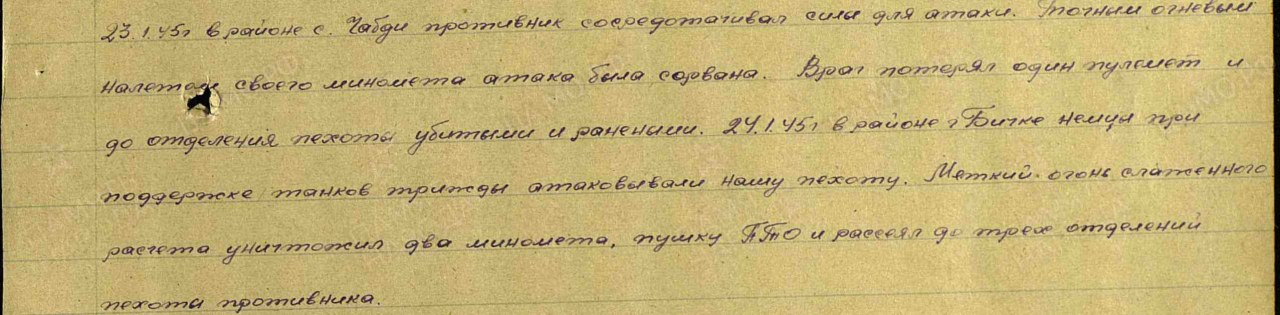 23.1.45г в районе с. Чабди противник сосредотачивал силы для атаки. Точным огневым
налетом своего миномета атака была сорвана. Враг потерял один пулемет и
до отделения пехоты убитыми и ранеными. 24.1.45г в районе г Бичке немцы при
поддержке танков трижды атаковывали нашу пехоту. Меткий огонь слаженного
расчета уничтожил два миномета, пушку ПТО и рассеял до трех отделений
пехоты противника.